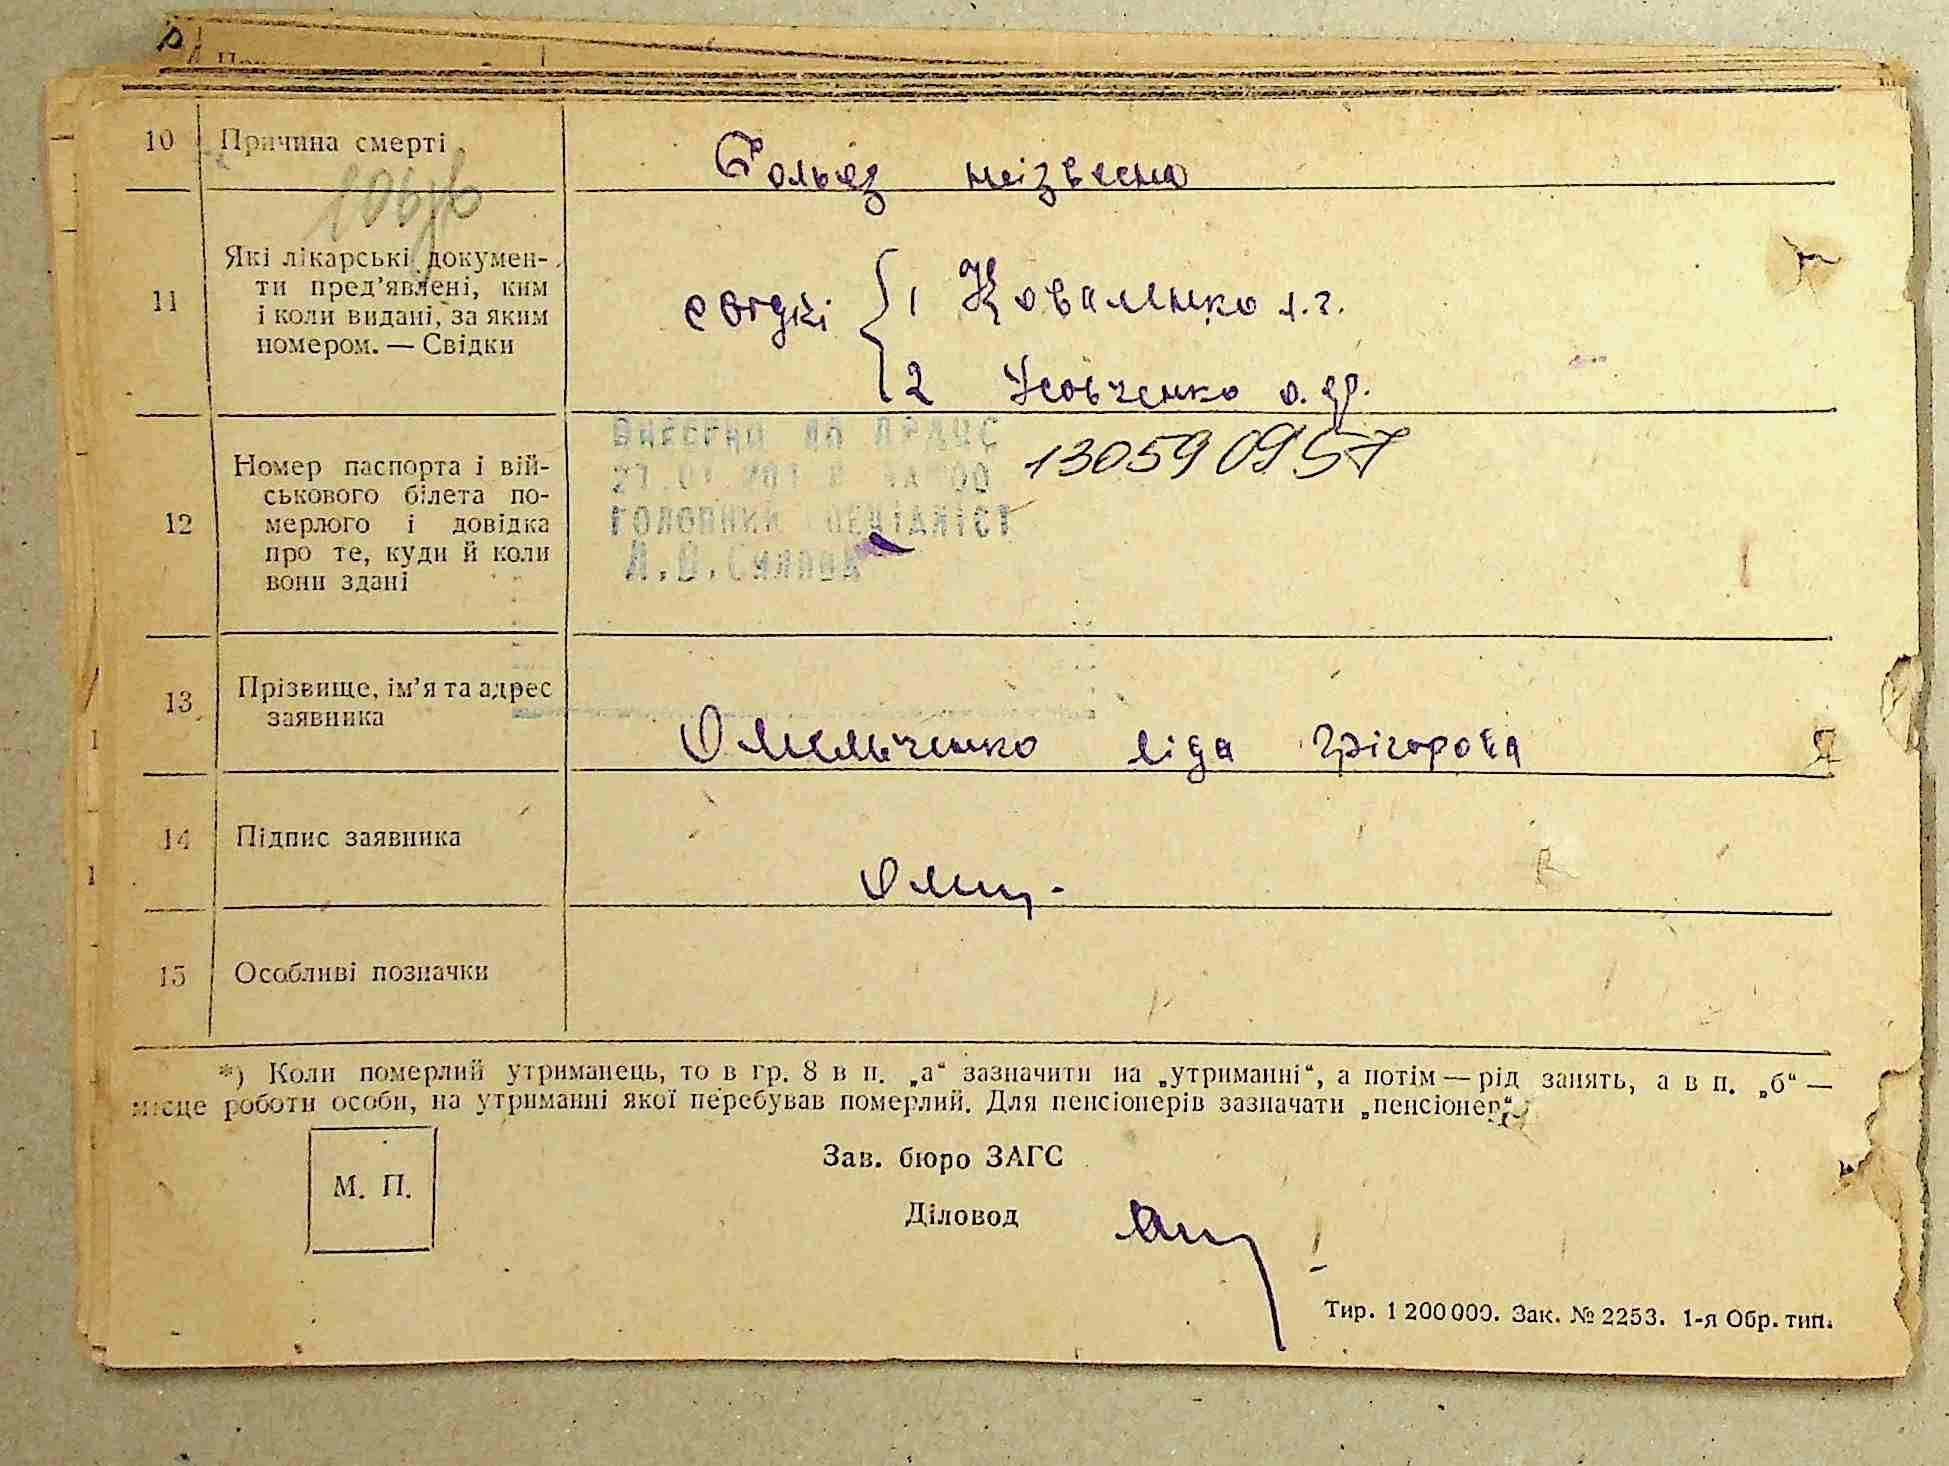 10 Причина смерті
неізвесна
11 Які лікарські докумен-
ти пред'явлені, ким
і коли видані, за яким
номером. — Свідки
свідкі 1 Коваленко
2 о.
12 Номер паспорта і вій-
ськового білета по-
мерлого і довідка
про те, куди й коли
вони здані
130590957
ВНЕСЕНО ДО ДРАЦС
ГОЛОВНИЙ СПЕЦІАЛІСТ
13 Прізвище, ім'я та адрес
заявника
Омельченко ліда грігорова
14 Підпис заявника
15 Особливі позначки
*) Коли померлий утриманець, то в гр. 8 в п. „а“ зазначити на „утриманні“, а потім — рід занять, а в п. „б“ —
місце роботи особи, на утриманні якої перебував померлий. Для пенсіонерів зазначати „пенсіонер“.
М. П.
Зав. бюро ЗАГС
Діловод
Тир. 1 200 000. Зак. № 2253. 1-я Обр. тип.